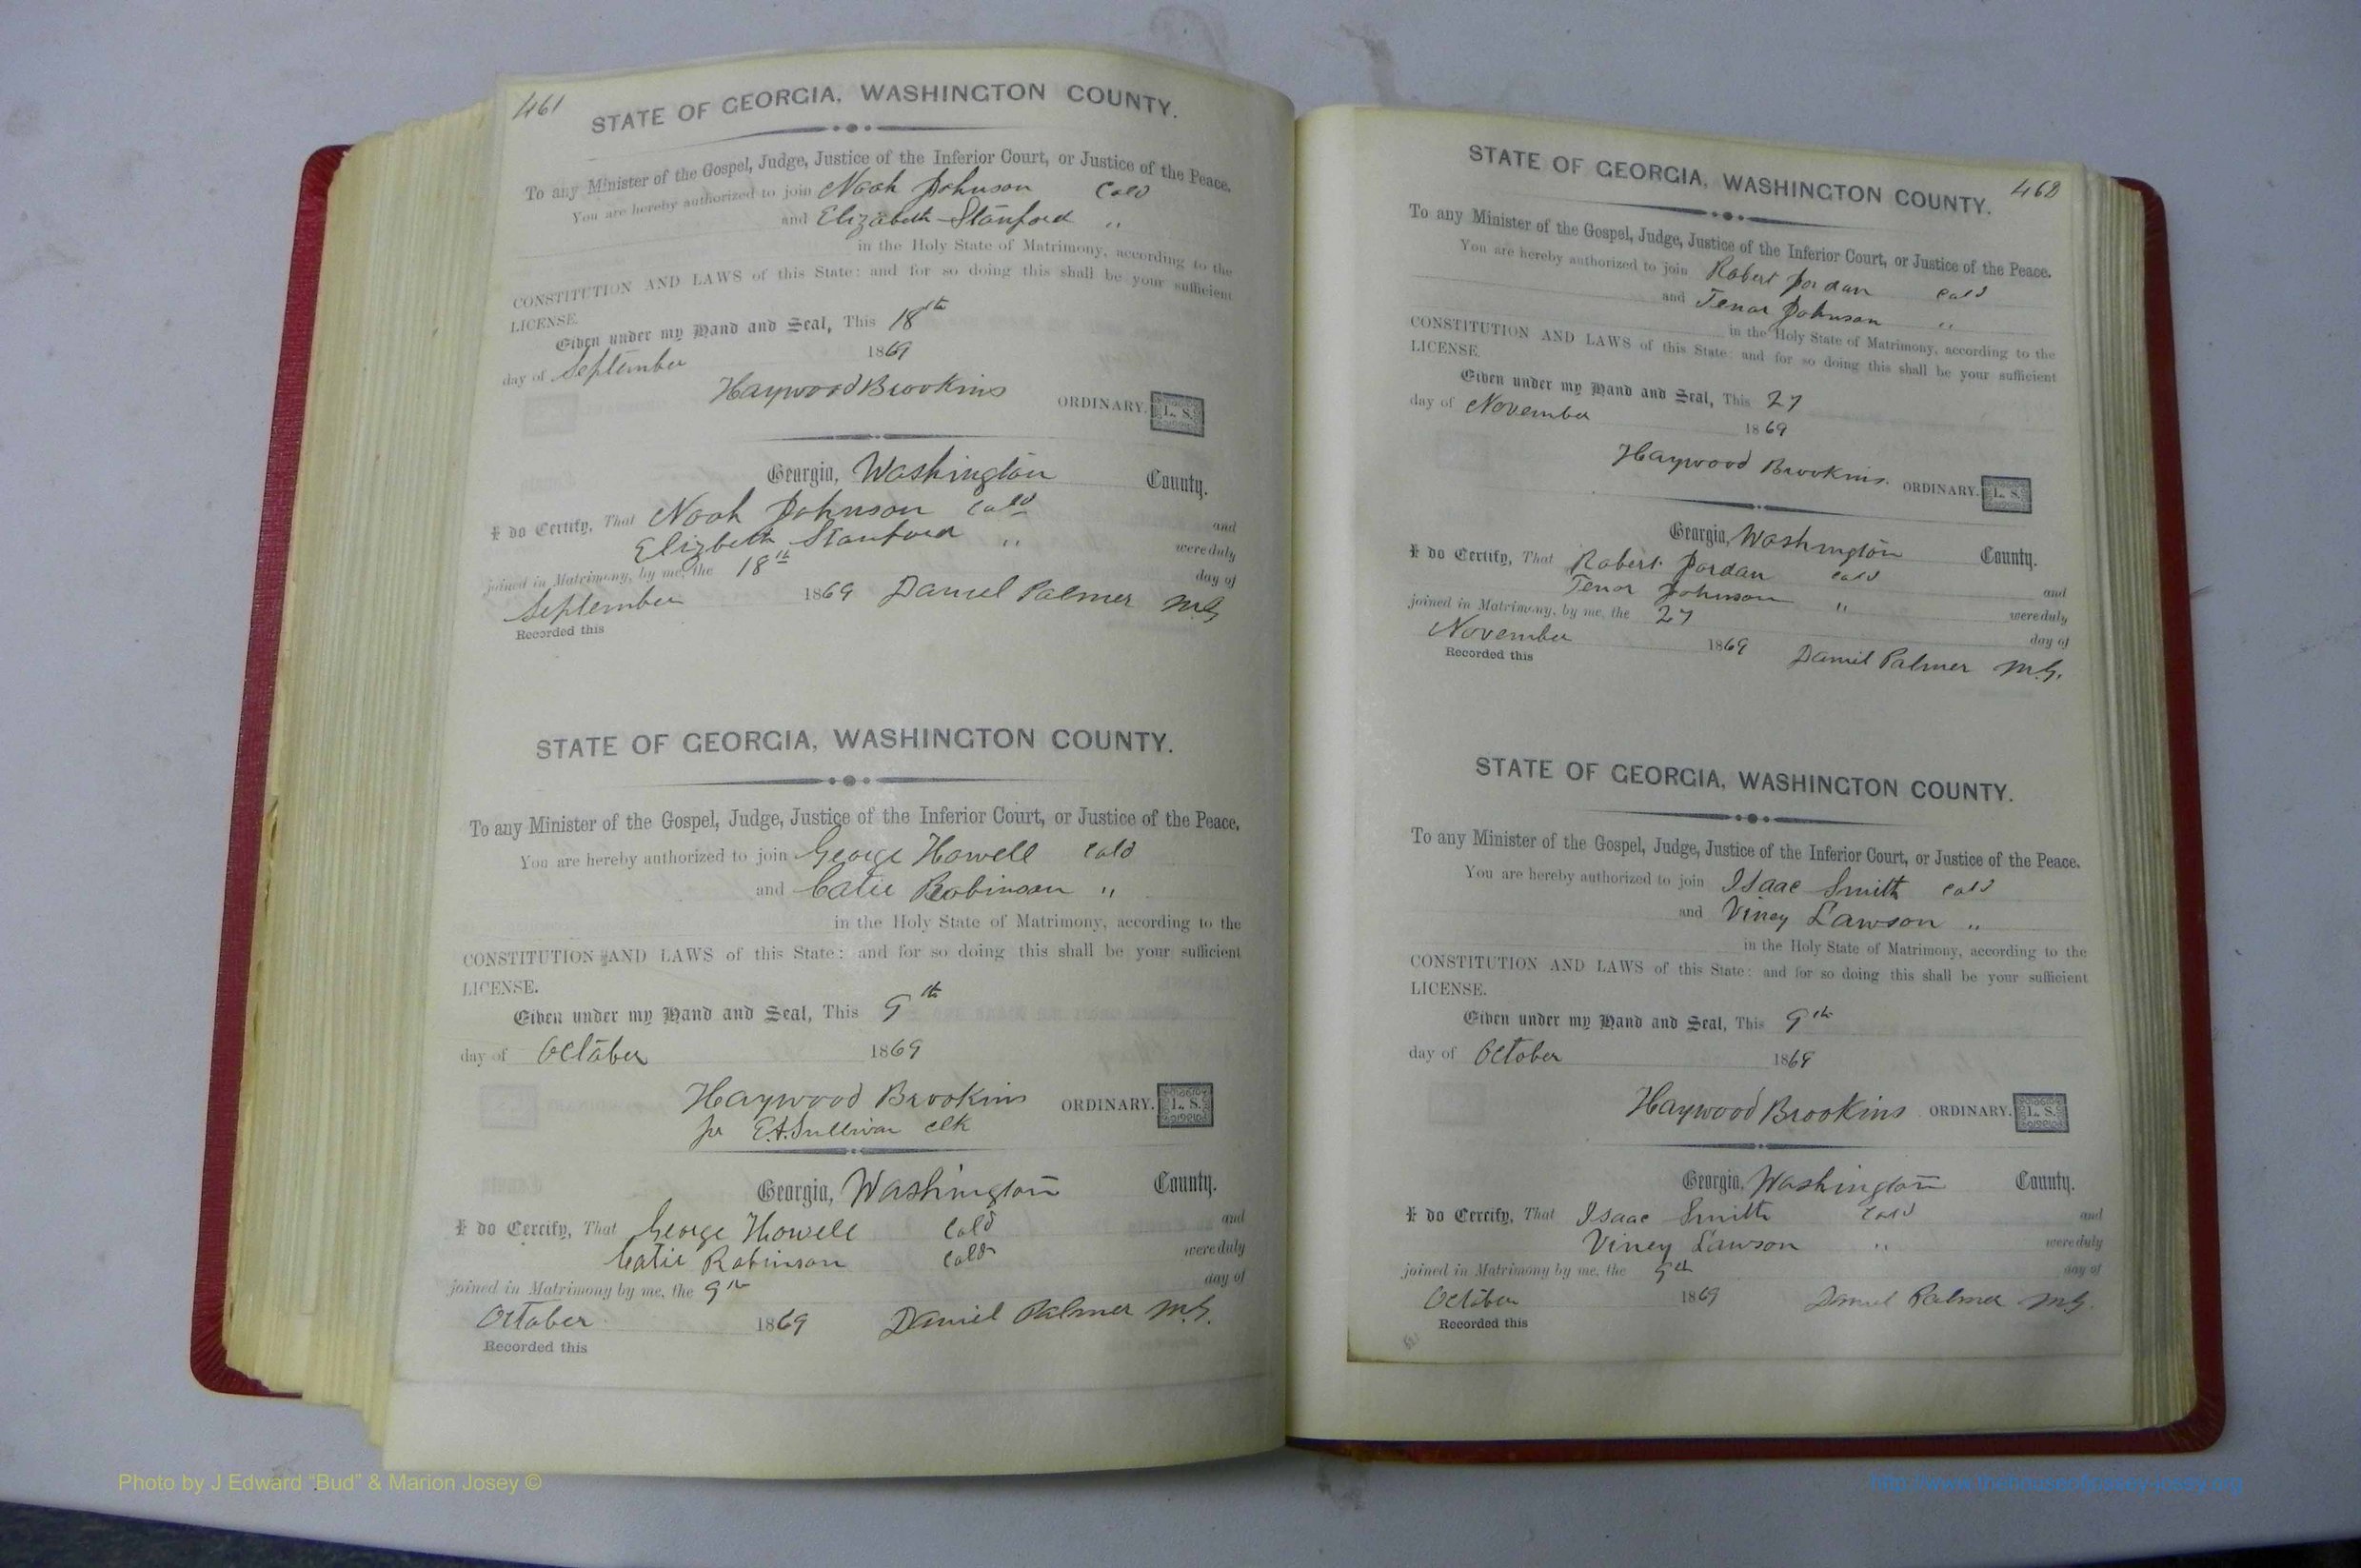 461
STATE OF GEORGIA, WASHINGTON COUNTY.
To any Minister of the Gospel, Judge, Justice of the Inferior Court, or Justice of the Peace.
You are hereby authorized to join Noah Johnson Cold
and Elizabeth Stanford "
in the Holy State of Matrimony, according to the
CONSTITUTION AND LAWS of this State: and for so doing this shall be your sufficient
LICENSE.
Given under my Hand and Seal, This 18th
day of September 1869
Haywood Brookins ORDINARY. L. S.
Georgia, Washington County.
I do Certify, That Noah Johnson Cold and
Elizbeth Stanford " were duly
joined in Matrimony, by me, the 18th day of
September 1869 Daniel Palmer M.G.
Recorded this
STATE OF GEORGIA, WASHINGTON COUNTY.
To any Minister of the Gospel, Judge, Justice of the Inferior Court, or Justice of the Peace.
You are hereby authorized to join George Howell Cold
and Catie Robinson "
in the Holy State of Matrimony, according to the
CONSTITUTION AND LAWS of this State: and for so doing this shall be your sufficient
LICENSE.
Given under my Hand and Seal, This 9th
day of October 1869
Haywood Brookins ORDINARY. L. S.
pr E.A. Sullivan Clk
Georgia, Washington County.
I do Certify, That George Howell Cold and
Catie Robinson Cold were duly
joined in Matrimony by me, the 9th day of
October 1869 Daniel Palmer M.G.
Recorded this
462
STATE OF GEORGIA, WASHINGTON COUNTY.
To any Minister of the Gospel, Judge, Justice of the Inferior Court, or Justice of the Peace.
You are hereby authorized to join Robert Jordan Cold
and Tenor Johnson "
in the Holy State of Matrimony, according to the
CONSTITUTION AND LAWS of this State: and for so doing this shall be your sufficient
LICENSE.
Given under my Hand and Seal, This 27
day of November 1869
Haywood Brookins. ORDINARY. L. S.
Georgia, Washington County.
I do Certify, That Robert Jordan Cold and
Tenor Johnson " were duly
joined in Matrimony, by me, the 27 day of
November 1869 Daniel Palmer M.G.
Recorded this
STATE OF GEORGIA, WASHINGTON COUNTY.
To any Minister of the Gospel, Judge, Justice of the Inferior Court, or Justice of the Peace.
You are hereby authorized to join Isaac Smith Cold
and Viney Lawson "
in the Holy State of Matrimony, according to the
CONSTITUTION AND LAWS of this State: and for so doing this shall be your sufficient
LICENSE.
Given under my Hand and Seal, This 9th
day of October 1869
Haywood Brookins ORDINARY. L. S.
Georgia, Washington County.
I do Certify, That Isaac Smith Cold and
Viney Lawson " were duly
joined in Matrimony by me, the 9th day of
October 1869 Daniel Palmer M.G.
Recorded this
Photo by J Edward "Bud" & Marion Josey ©